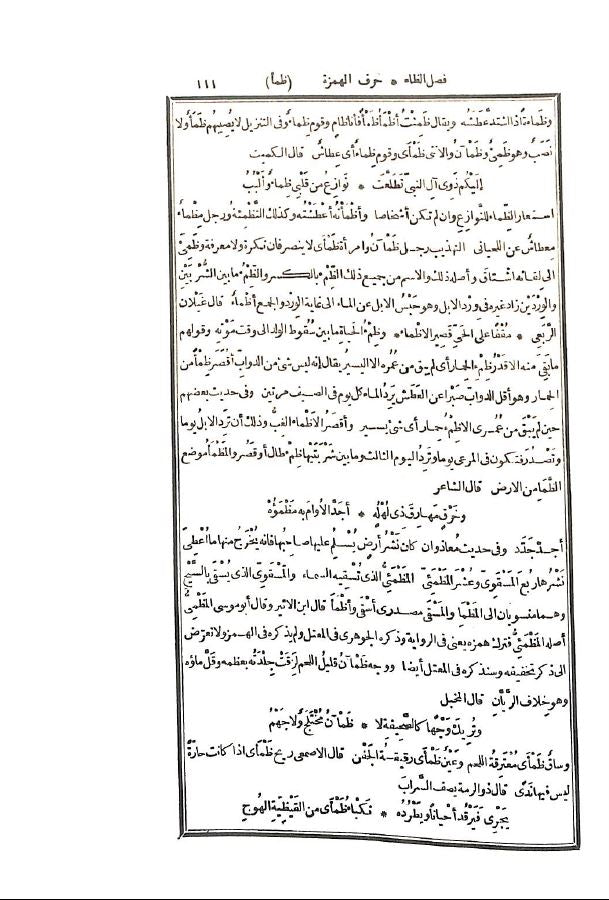 فصل الظاء * حرف الهمزة (ظمأ) ١١١
وظماءة اذا اشتد عطشه ويقال ظمئت أظمأ ظمأ فأنا ظام وقوم ظماء وفى التنزيل لا يصيبهم ظمأ ولا
نصب وهو ظمئ وظمآن والانثى ظمأى وقوم ظماء أى عطاش قال الكميت
اليكم ذوى آل النبى تطلعت * نوازع من قلبى ظماء وألبب
استعار الظماء للنوازع وان لم تكن أشخاصا وأظمأته أعطشته وكذلك التظمئة ورجل مظماء
معطاش عن اللحيانى التهذيب رجل ظمآن وامرأة ظمأى لا ينصرفان نكرة ولا معرفة وظمئ
الى لقائه اشتاق وأصله ذلك والاسم من جميع ذلك الظمء بالكسر والظمء ما بين الشربين
والوردين زاد غيره فى ورد الابل وهو حبس الابل عن الماء الى غاية الورد والجمع أظماء قال غيلان
الربعى * مقفا على الحى قصير الاظماء * وظمء الحياة ما بين سقوط الولد الى وقت موته وقولهم
ما بقى منه الا قدر ظمء الحمار أى لم يبق من عمره الا اليسير يقال انه ليس شئ من الدواب أقصر ظمأ من
الحمار وهو أقل الدواب صبرا عن العطش يرد الماء كل يوم فى الصيف مرتين وفى حديث بعضهم
حين لم يبق من عمرى الا ظمء حمار أى شئ يسير وأقصر الاظماء الغب وذلك أن ترد الابل يوما
وتصدر فتكون فى المرعى يوما وترد اليوم الثالث وما بين شربتيها ظمء طال أو قصر والمظمأ موضع
الظمأ من الارض قال الشاعر
وخرق مهارق ذى لهله * أجد الأوام به مظمؤه
أجد جدد وفى حديث معاذ وان كان نشر أرض يسلم عليها صاحبها فانه يخرج منها ما أعطى
نشرها ربع المسقوى وعشر المظمئى المظمئى الذى تسقيه السماء والمسقوى الذى يسقى بالسيح
وهما منسوبان الى المظما والمسقى مصدرى أسقى وأظمأ قال ابن الاثير وقال أبو موسى المظمى
أصله المظمئى فترك همزه يعنى فى الرواية وذكره الجوهرى فى المعتل ولم يذكره فى الهمز ولا تعرض
الى ذكر تخفيفه وسنذكره فى المعتل أيضا ووجه ظمآن قليل اللحم لزقت جلدته بعظمه وقل ماؤه
وهو خلاف الريان قال المخبل
وتريك وجها كالصحيفة لا * ظمآن مختلج ولا جهم
وساق ظمأى معترقة اللحم وعين ظمأى رقيقة الجفن قال الاصمعى ريح ظمأى اذا كانت حارة
ليس فيها ندى قال ذو الرمة يصف السراب
يجرى فيرقد أحيانا ويطرده * نكباء ظمأى من القيظية الهوج